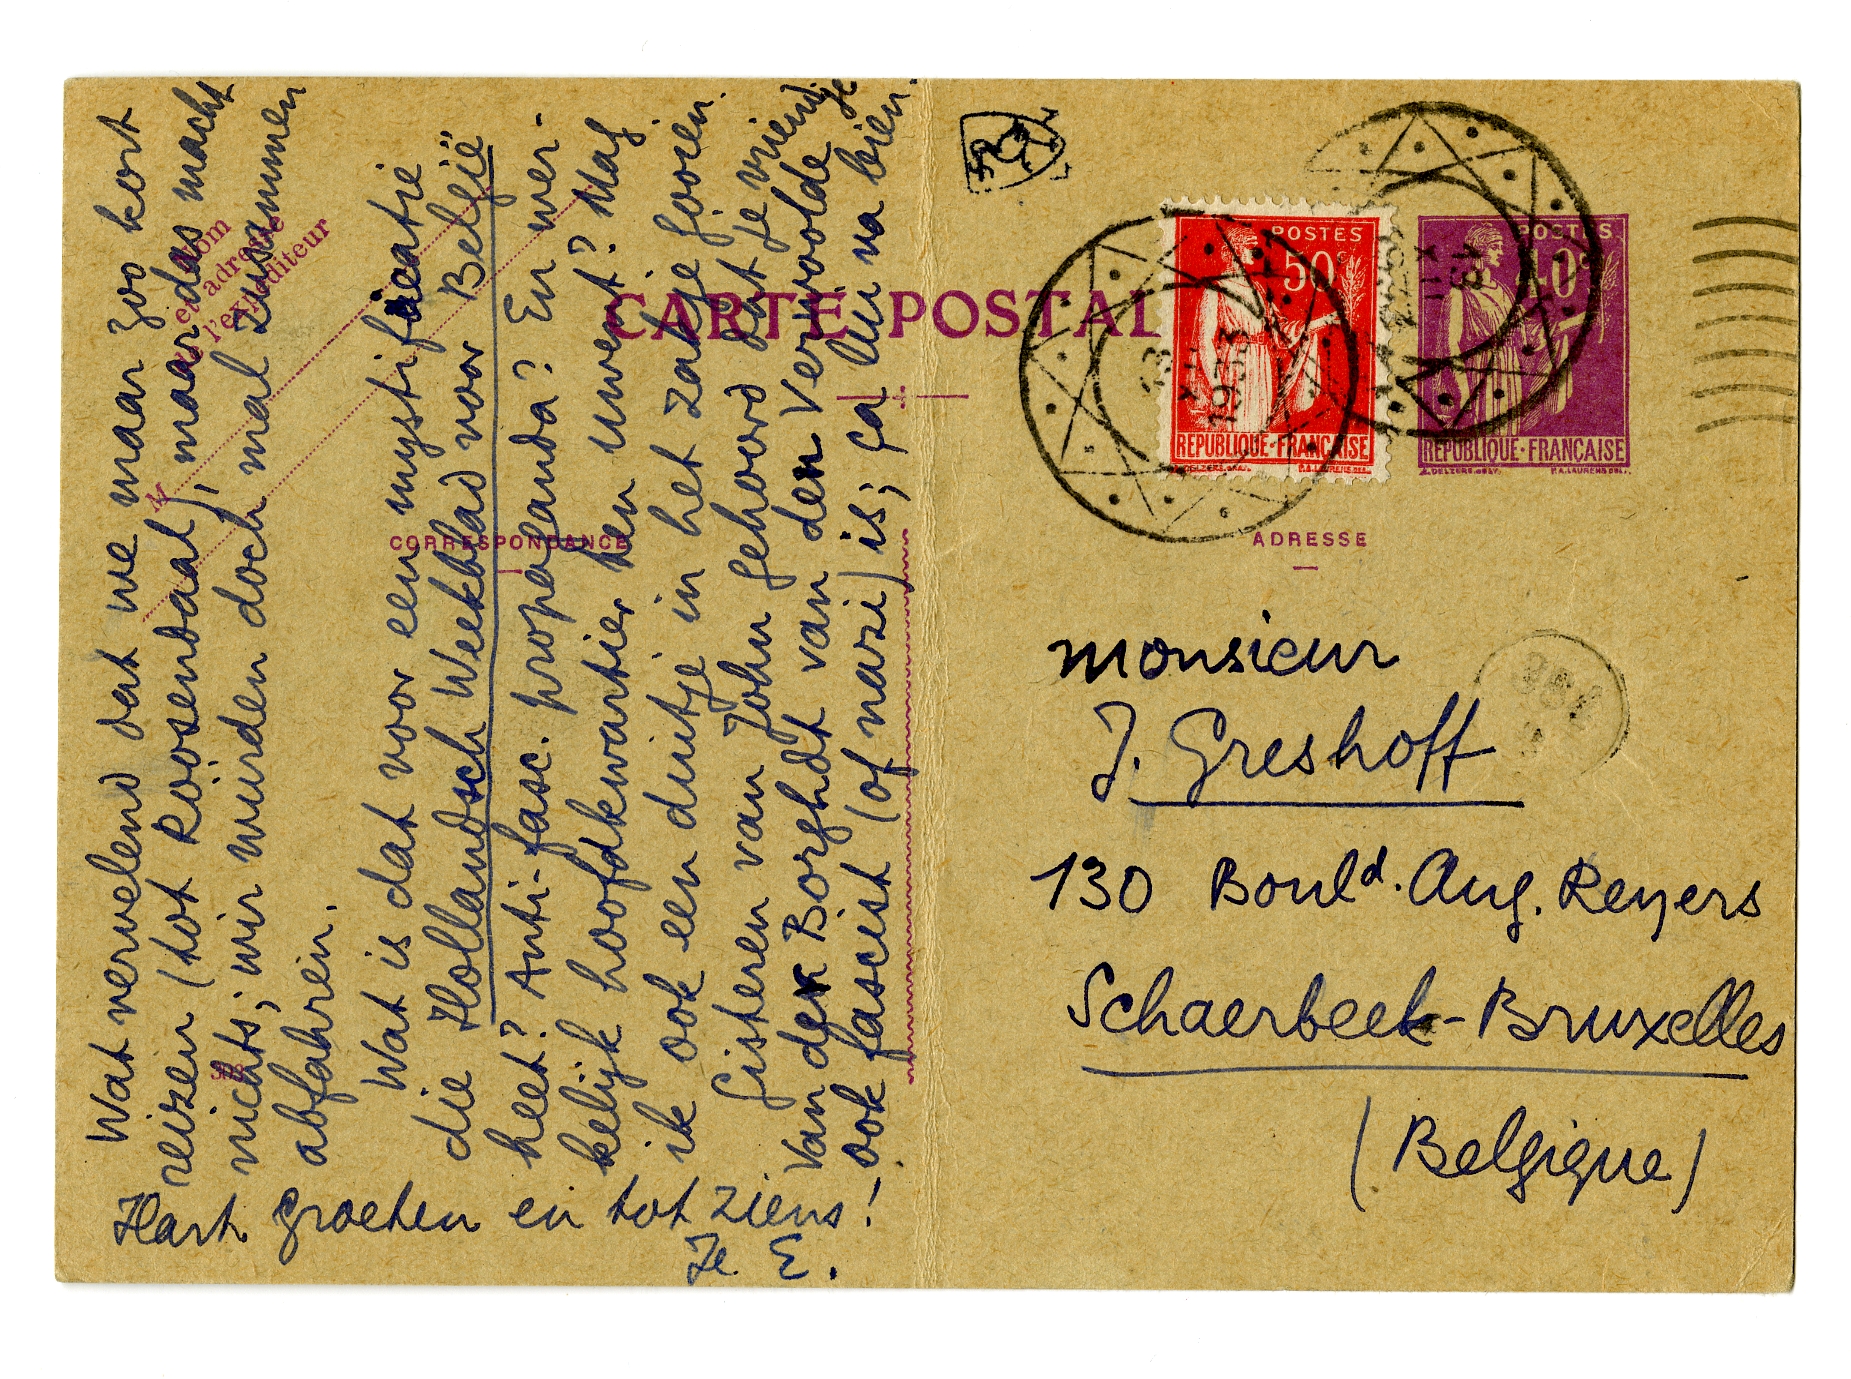 Wat vervelend dat we maar zoo kort
reizen (tot Roosendaal), maar das macht
nichts; wir wurden doch mal zusammen
abfahren.
Wat is dat voor een mystificatie
die Hollandsch Weekblad voor België
heet? Anti-fasc. propaganda? En wer-
kelijk hoofdkwartier ten uwent? Mag
ik ook een duitje in het zakje gooien.
Gisteren van John gehoord dat je vriendje
Van der Borght van den Vervoolde
ook fascist (of nazi) is; ça lui va bien.
Hart. groeten en tot ziens!
Je E.
Nom
et adresse
de l'expéditeur
M
CARTE POSTALE
CORRESPONDANCE
ADRESSE
POSTES
50
REPUBLIQUE·FRANÇAISE
POSTES
40c
REPUBLIQUE·FRANÇAISE
1933
monsieur
J. Greshoff
130 Bould. Aug. Reyers
Schaerbeek-Bruxelles
(Belgique)